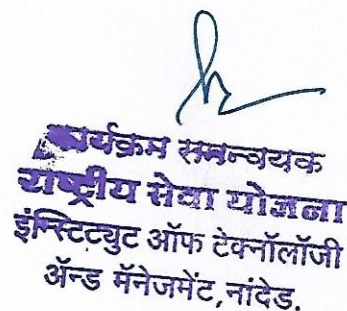 कार्यक्रम समन्वयक
राष्ट्रीय सेवा योजना
इंन्स्टिट्युट ऑफ टेक्नॉलॉजी
ॲन्ड मॅनेजमेंट,नांदेड.